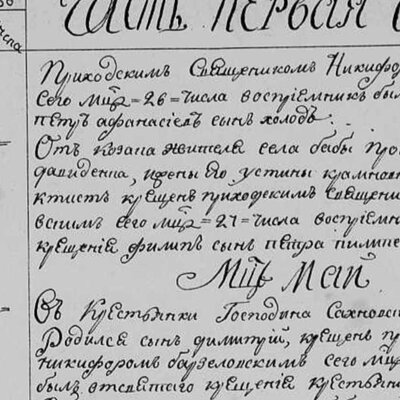 Часть первая
Приходскимъ Священикомъ Никифор
сего мца = 26 = числа воспріемникъ был
петръ афанасіевъ сынъ холодъ.
Отъ козака жителя села бабы Про
давиденка, и жены его устины крамно
ктистъ крещенъ приходскимъ Священи
вскимъ сего мца = 27 = числа воспріемн
крещенія филипъ сынъ петра пилипе
Мцъ Май
Отъ Крестьянки Господина Сахновс
Родился сынъ димитрій, крещенъ пр
никифоромъ барзеловскимъ сего мца
былъ отсвятаго крещенія крестьян